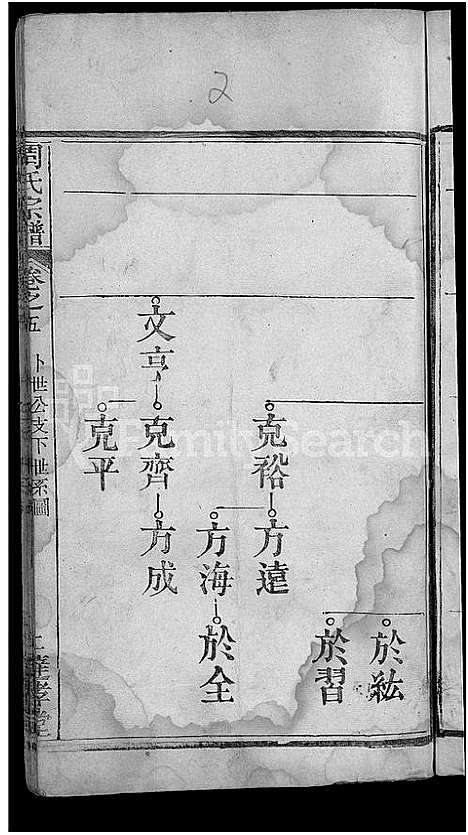 2
於紘
於習
克裕
方遠
方海
於全
文亨
克齊
方成
克平
周氏宗譜
卷之五
卜世公支下世系圖
FamilySearch